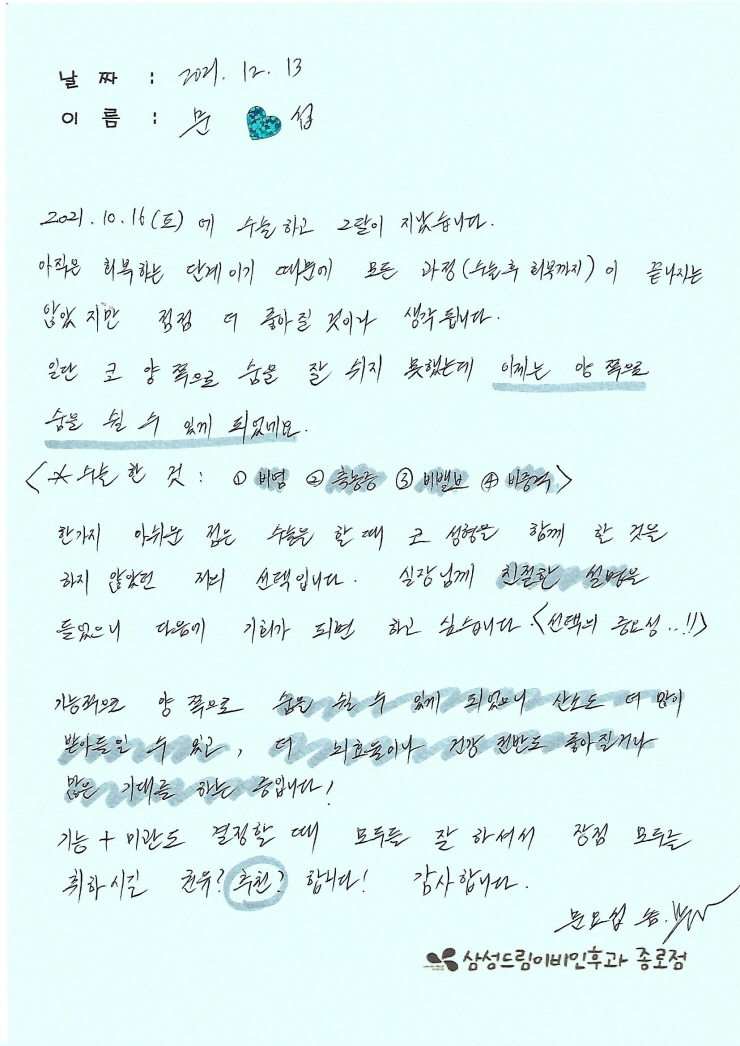 날 짜 : 2021. 12. 13
이 름 : 문 섭
2021. 10. 16(토) 에 수술하고 2달이 지났습니다.
아직은 회복하는 단계이기 때문에 모든 과정(수술후 회복까지)이 끝나지는
않았지만 점점 더 좋아질 것이라 생각됩니다.
일단 코 양 쪽으로 숨을 잘 쉬지 못했는데 이제는 양 쪽으로
숨을 쉴 수 있게 되었네요.
<※ 수술 한 것 : ① 비염 ② 축농증 ③ 비밸브 ④ 비중격>
한가지 아쉬운 점은 수술을 할 때 코 성형을 함께 한 것을
하지 않았던 저의 선택입니다. 실장님께 친절한 설명을
들었으니 다음에 기회가 되면 하고 싶습니다.<선택의 중요성..!!>
기능적으로 양 쪽으로 숨을 쉴 수 있게 되었으니 산소도 더 많이
받아들일 수 있고, 더 뇌효율이나 건강 전반도 좋아질거라
많은 기대를 하는 중입니다!
기능 + 미관도 결정할 때 모두들 잘 하셔서 장점 모두를
취하시길 권유? 추천? 합니다! 감사합니다.
문요섭 씀.
삼성드림이비인후과 종로점